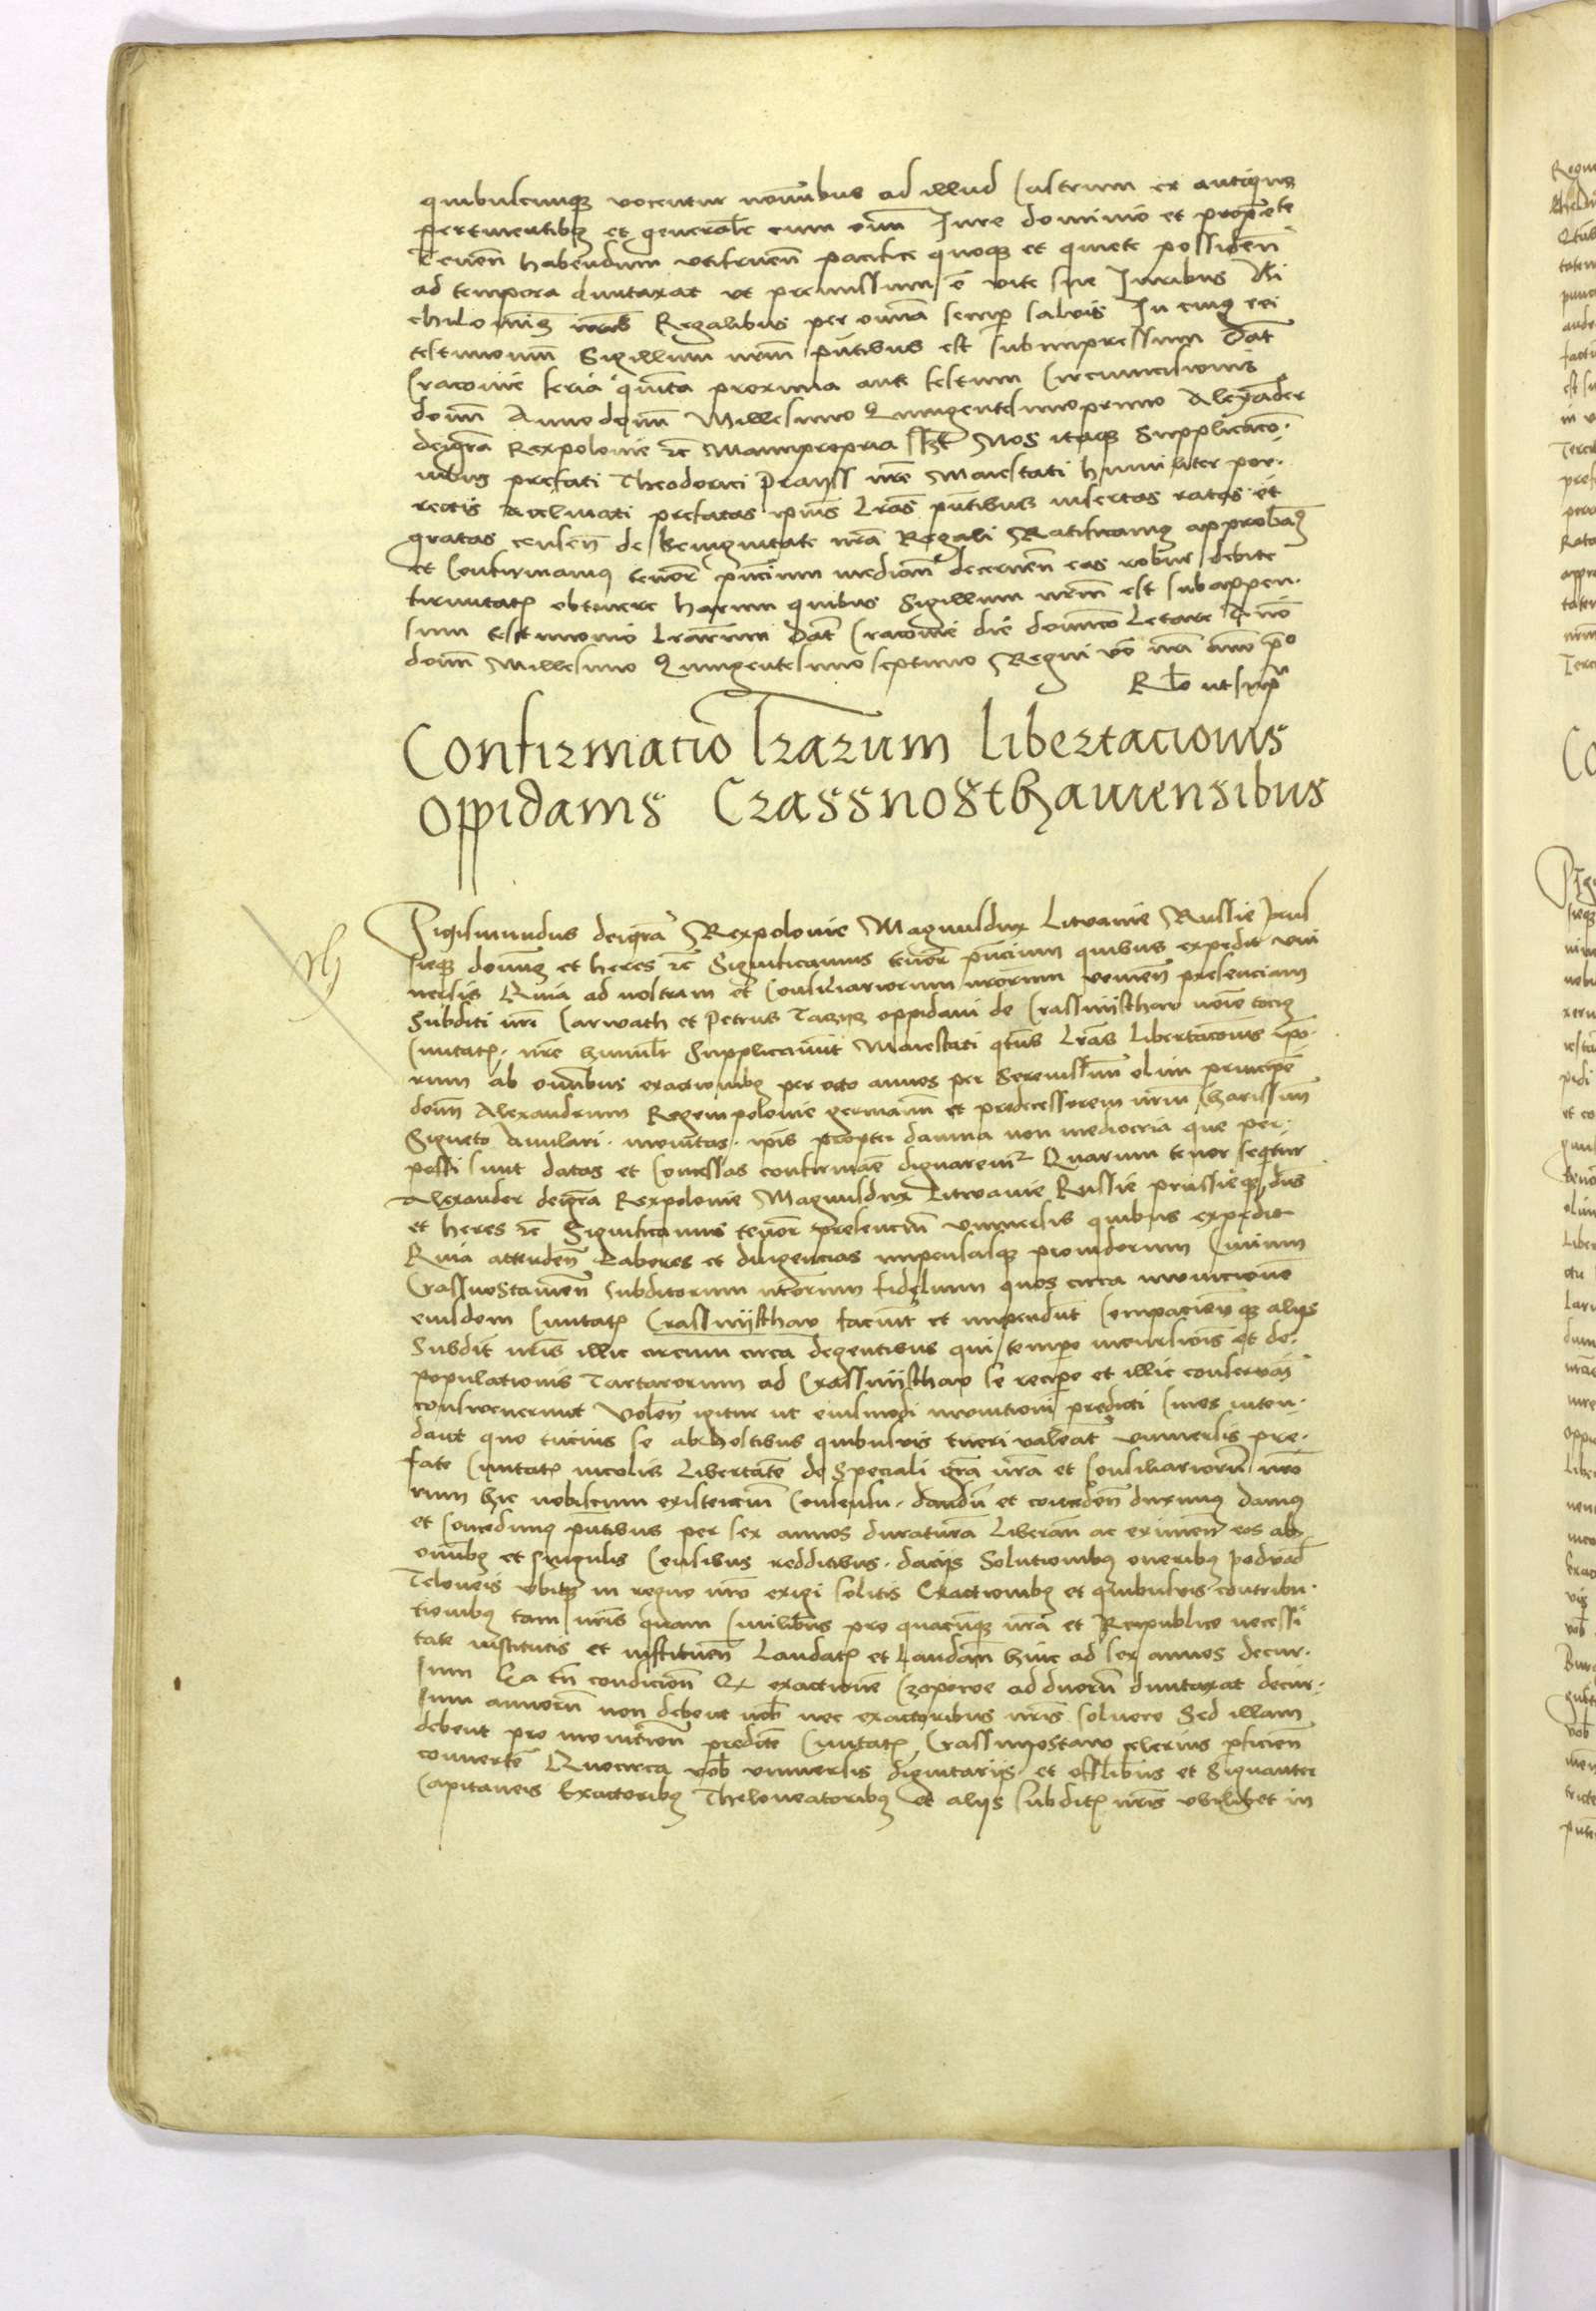 quibuscumq vocentur nominibus ad illud Castrum ex antiquo
pertinentibus et generalr cum omni Iure dominio et propriete
Tenen habendum utifruen pacifice quoq et quiete possiden
ad tempora duntaxat ut premissum e vite sue Iuribus Ni
chilominus nris Regalibus per omnia semper salvis In cuius rei
testimonium Sigillum nrm pntibus est subimpressum Dat
Cracovie feria quinta proxima ante festum Circumcisionis
domini Anno domini Millesimo Quingentesimoprimo Alexander
dei gra Rex polonie zc Manu propria sszt Nos itaq Supplicacio-
nibus prefati Theodorici prayss nre Maiestati humiliter por-
rectis acclinati prefatas ipius lras pntibus insertas ratas et
gratas censen de benignitate nra Regali Ratificamus approbam
et Confirmamus tenore pncium median decernen eas robur debite
firmitatis obtinere harum quibus Sigillum nrm est subappen-
sum testimonio lrarum Dat Cracovie die dominco Letare Anno
domini Millesimo Quingentesimo septimo Regni vo nri anno pmo
Rlo ut supra
Confirmatio lrarum libertacionis
oppidanis Crassnosthauiensibus
Sigismundus dei gra Rex polonie Magnusdux Lituanie Russie prus
sieq dominus et heres zc Significamus tenore pncium quibus expedit vni
uersis Quia ad nostram et Consiliariorum nrorum venien presenciam
Subditi nri Carwath et Petrus oppidani de Crassnijsthaw noie tocius
Ciuitatis nre humilr Supplicaverunt Maiestati qtus lras Libertacionis ipo-
rum ab omnibus exactionibus per octo annos per Serenissimum olim principe
domin Alexandrum Regem polonie germanum et predecessorem nrm charissimum
Signeto Annulari munitas ipis propter damna non mediocria que per-
passi sunt datas et Concessas confirmare dignaremur Quarum tenor sequitur
Alexander dei gra Rex polonie Magnusdux Lituanie Russie prussieq dns
et heres zc Significamus tenore presencium vniuersis quibus expedit
Quia attenden Labores et diligencias impensasq prouidorum Ciuium
Crassnostauien Subditorum nrorum fidelium quos circa municione
eiusdem Ciuitatis Crassnijsthaw faciunt et impendunt alijs
Subdit nris illic circum circa degentibus qui tempore incursionis et de-
populationis Tartarorum ad Crassnijsthaw se recipe et illic conseruari
consweuerunt Volen igitur ut eiusmodi munitioni predicti Ciues inten-
dant quo tucius se ab hostibus quibusuis tueri valeat vniuersis pre-
fate Ciuitatis incolis Libertatem de Speciali gra nra et Consiliariorum nro
rum hic nobiscum existencium Consensu dandu et conceden duximus damus
et Concedimus pntibus per sex annos duraturam Liberan ac eximen eos ab
omnibus et singulis Censibus redditibus dacijs Solutionibus oneribus podvod
Teloneis vbiq in regno nro exigi solitis Exactionibus et quibusuis contribu-
tionibus tam nris quam Ciuilibus pro quacunq nra et Reipublice necessi
tate institutis et instituen Laudatis et Laudan hinc ad sex annos decur-
sum Ea tn condicione Qz exactione Czopowe ad duoru duntaxat decur-
sum annoru non debent nob nec exactoribus nris soluere Sed illam
debent pro munitione predicte Ciuitatis Crassnostaw celerius pficien
conuerte Quocirca vob vniuersis dignitarijs et offlibus et Signanter
Capitaneis Exactoribus Theloneatoribus et alijs subditis nris vbilibet in